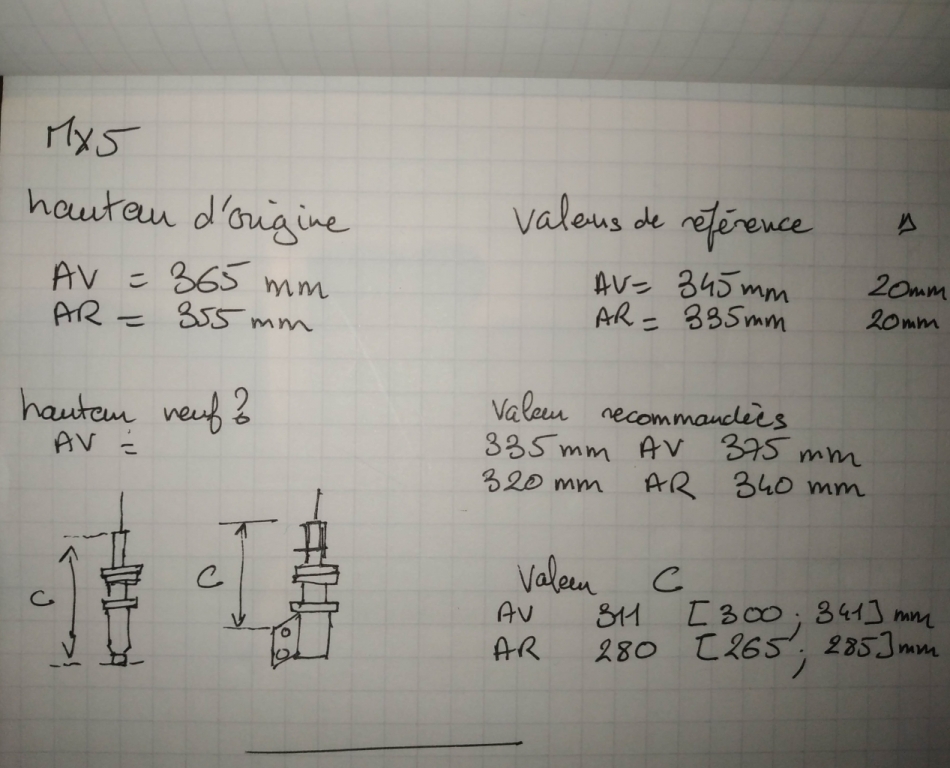 MX5
hauteur d'origine
AV = 365 mm
AR = 355 mm
Valeurs de référence Δ
AV = 345 mm 20mm
AR = 335mm 20mm
hauteur neuf ?
AV =
Valeur recommandées
335 mm AV 375 mm
320 mm AR 340 mm
C
C
Valeur C
AV 311 [300 ; 341] mm
AR 280 [265 ; 285] mm